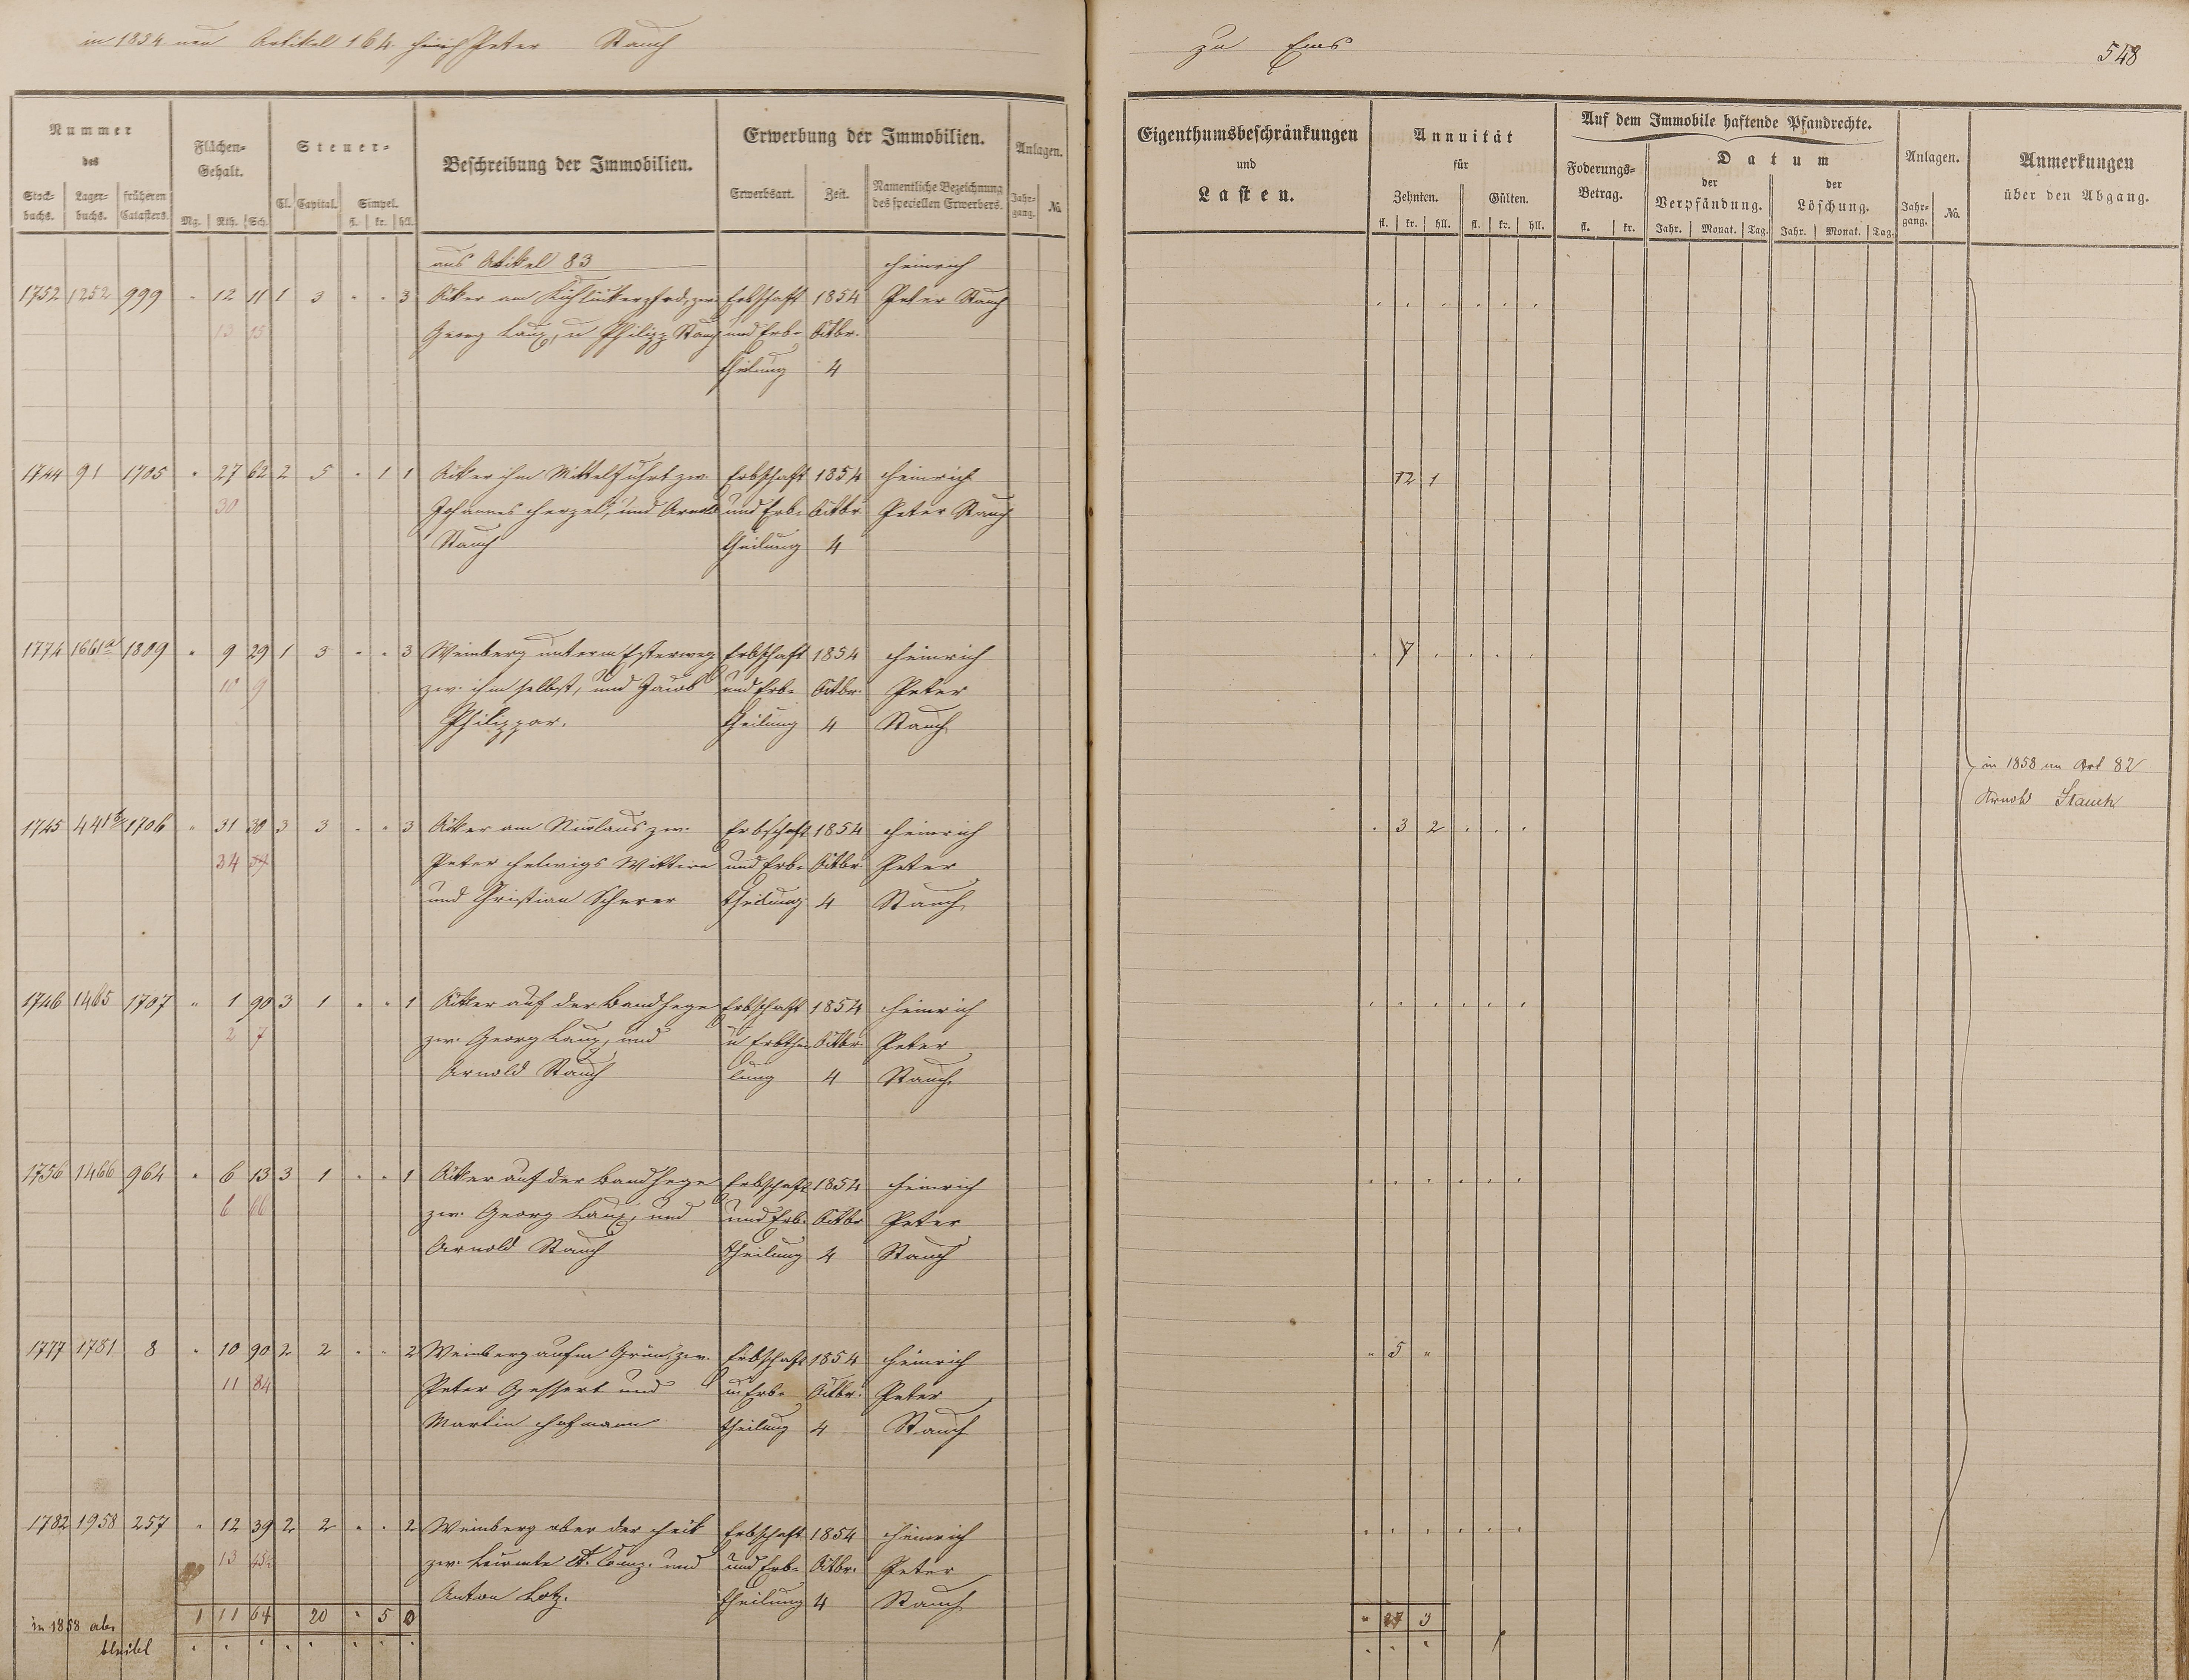 in 1854 neu Artikel 164. Heinrich Peter Stauch
zu Ems
548
Nummer des
Stockbuchs. Lagerbuchs. früheren Catasters.
Flächen-Gehalt.
Mg. Rth. Sch.
Steuer-
Cl. Capital. Simpel.
fl. kr. hll.
Beschreibung der Immobilien.
Erwerbung der Immobilien.
Erwerbsart. Zeit. Namentliche Bezeichnung des speciellen Erwerbers.
Anlagen.
Jahrgang. No.
Eigenthumsbeschränkungen
und
Lasten.
Annuität
für
Zehnten. Gülten.
fl. kr. hll. fl. kr. hll.
Auf dem Immobile haftende Pfandrechte.
Foderungs-Betrag.
fl. kr.
Datum
der Verpfändung. der Löschung.
Jahr. Monat. Tag. Jahr. Monat. Tag.
Anlagen.
Jahrgang. No.
Anmerkungen
über den Abgang.
aus Artikel 83 Heinrich
1752 1252 999 " 12 11 1 3 " " 3 Acker am zw. Erbschaft 1854 Peter Stauch
13 15 Georg Laux, u Philipp Stauch und Erb- Octbr.
theilung 4
1744 91 1705 " 27 62 2 5 " 1 1 Acker im Mittelfuhrt zw. Erbschaft 1854 Heinrich 12 1
30 Johannes Herzel, und Arnold und Erb- Octbr Peter Stauch
Stauch theilung 4
1774 1661a 1809 " 9 29 1 3 " " 3 Weinberg unterm zw. Erbschaft 1854 Heinrich . 7 . . . .
10 9 zw. ihm selbst, und Jacob und Erb- Octbr. Peter
Philippar. theilung 4 Stauch
in 1858 an Art 82
Arnold Stauch
1745 441 1706 " 31 30 3 3 " " 3 Acker am Niclaus zw. Erbschaft 1854 Heinrich . 3 2 . . .
34 Peter Helwigs Wittwe und Erb- Octbr. Peter
und Christian Scherer theilung 4 Stauch
1746 1465 1707 " 1 90 3 1 " " 1 Acker auf der Bandhege Erbschaft 1854 Heinrich
2 7 zw. Georg Laux, und u Erbthei- Octbr. Peter
Arnold Stauch lung 4 Stauch
1756 1466 964 " 6 13 3 1 " " 1 Acker auf der Bandhege Erbschaft 1854 Heinrich
6 66 zw. Georg Laux, und und Erb- Octbr Peter
Arnold Stauch theilung 4 Stauch
1777 1781 8 " 10 90 2 2 " " 2 Weinberg aufm Grün, zw. Erbschaft 1854 Heinrich " 5 "
11 84 Peter Gessert und u. Erb- Octbr. Peter
Martin Hofmann theilung 4 Stauch
1782 1958 257 " 12 39 2 2 " " 2 Weinberg ober der Erbschaft 1854 Heinrich
13 zw. und und Erb- Octbr. Peter
Anton Lotz. theilung 4 Stauch
in 1858 ab. 1 11 64 20 " 5 0 " 27 3
bleibt